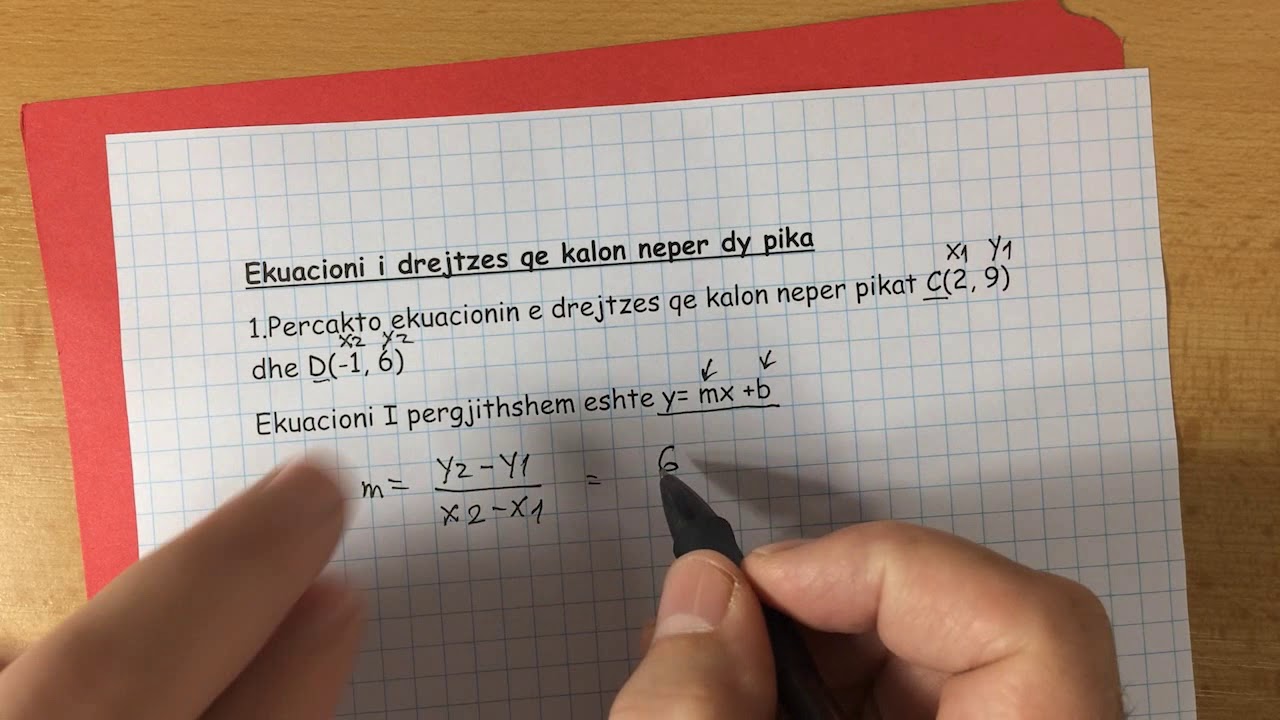 Ekuacioni i drejtzes qe kalon neper dy pika
x1 y1
1.Percakto ekuacionin e drejtzes qe kalon neper pikat C(2, 9)
x2 y2
dhe D(-1, 6)
Ekuacioni I pergjithshem eshte y= mx +b
m = y2 - y1 / x2 - x1 = 6